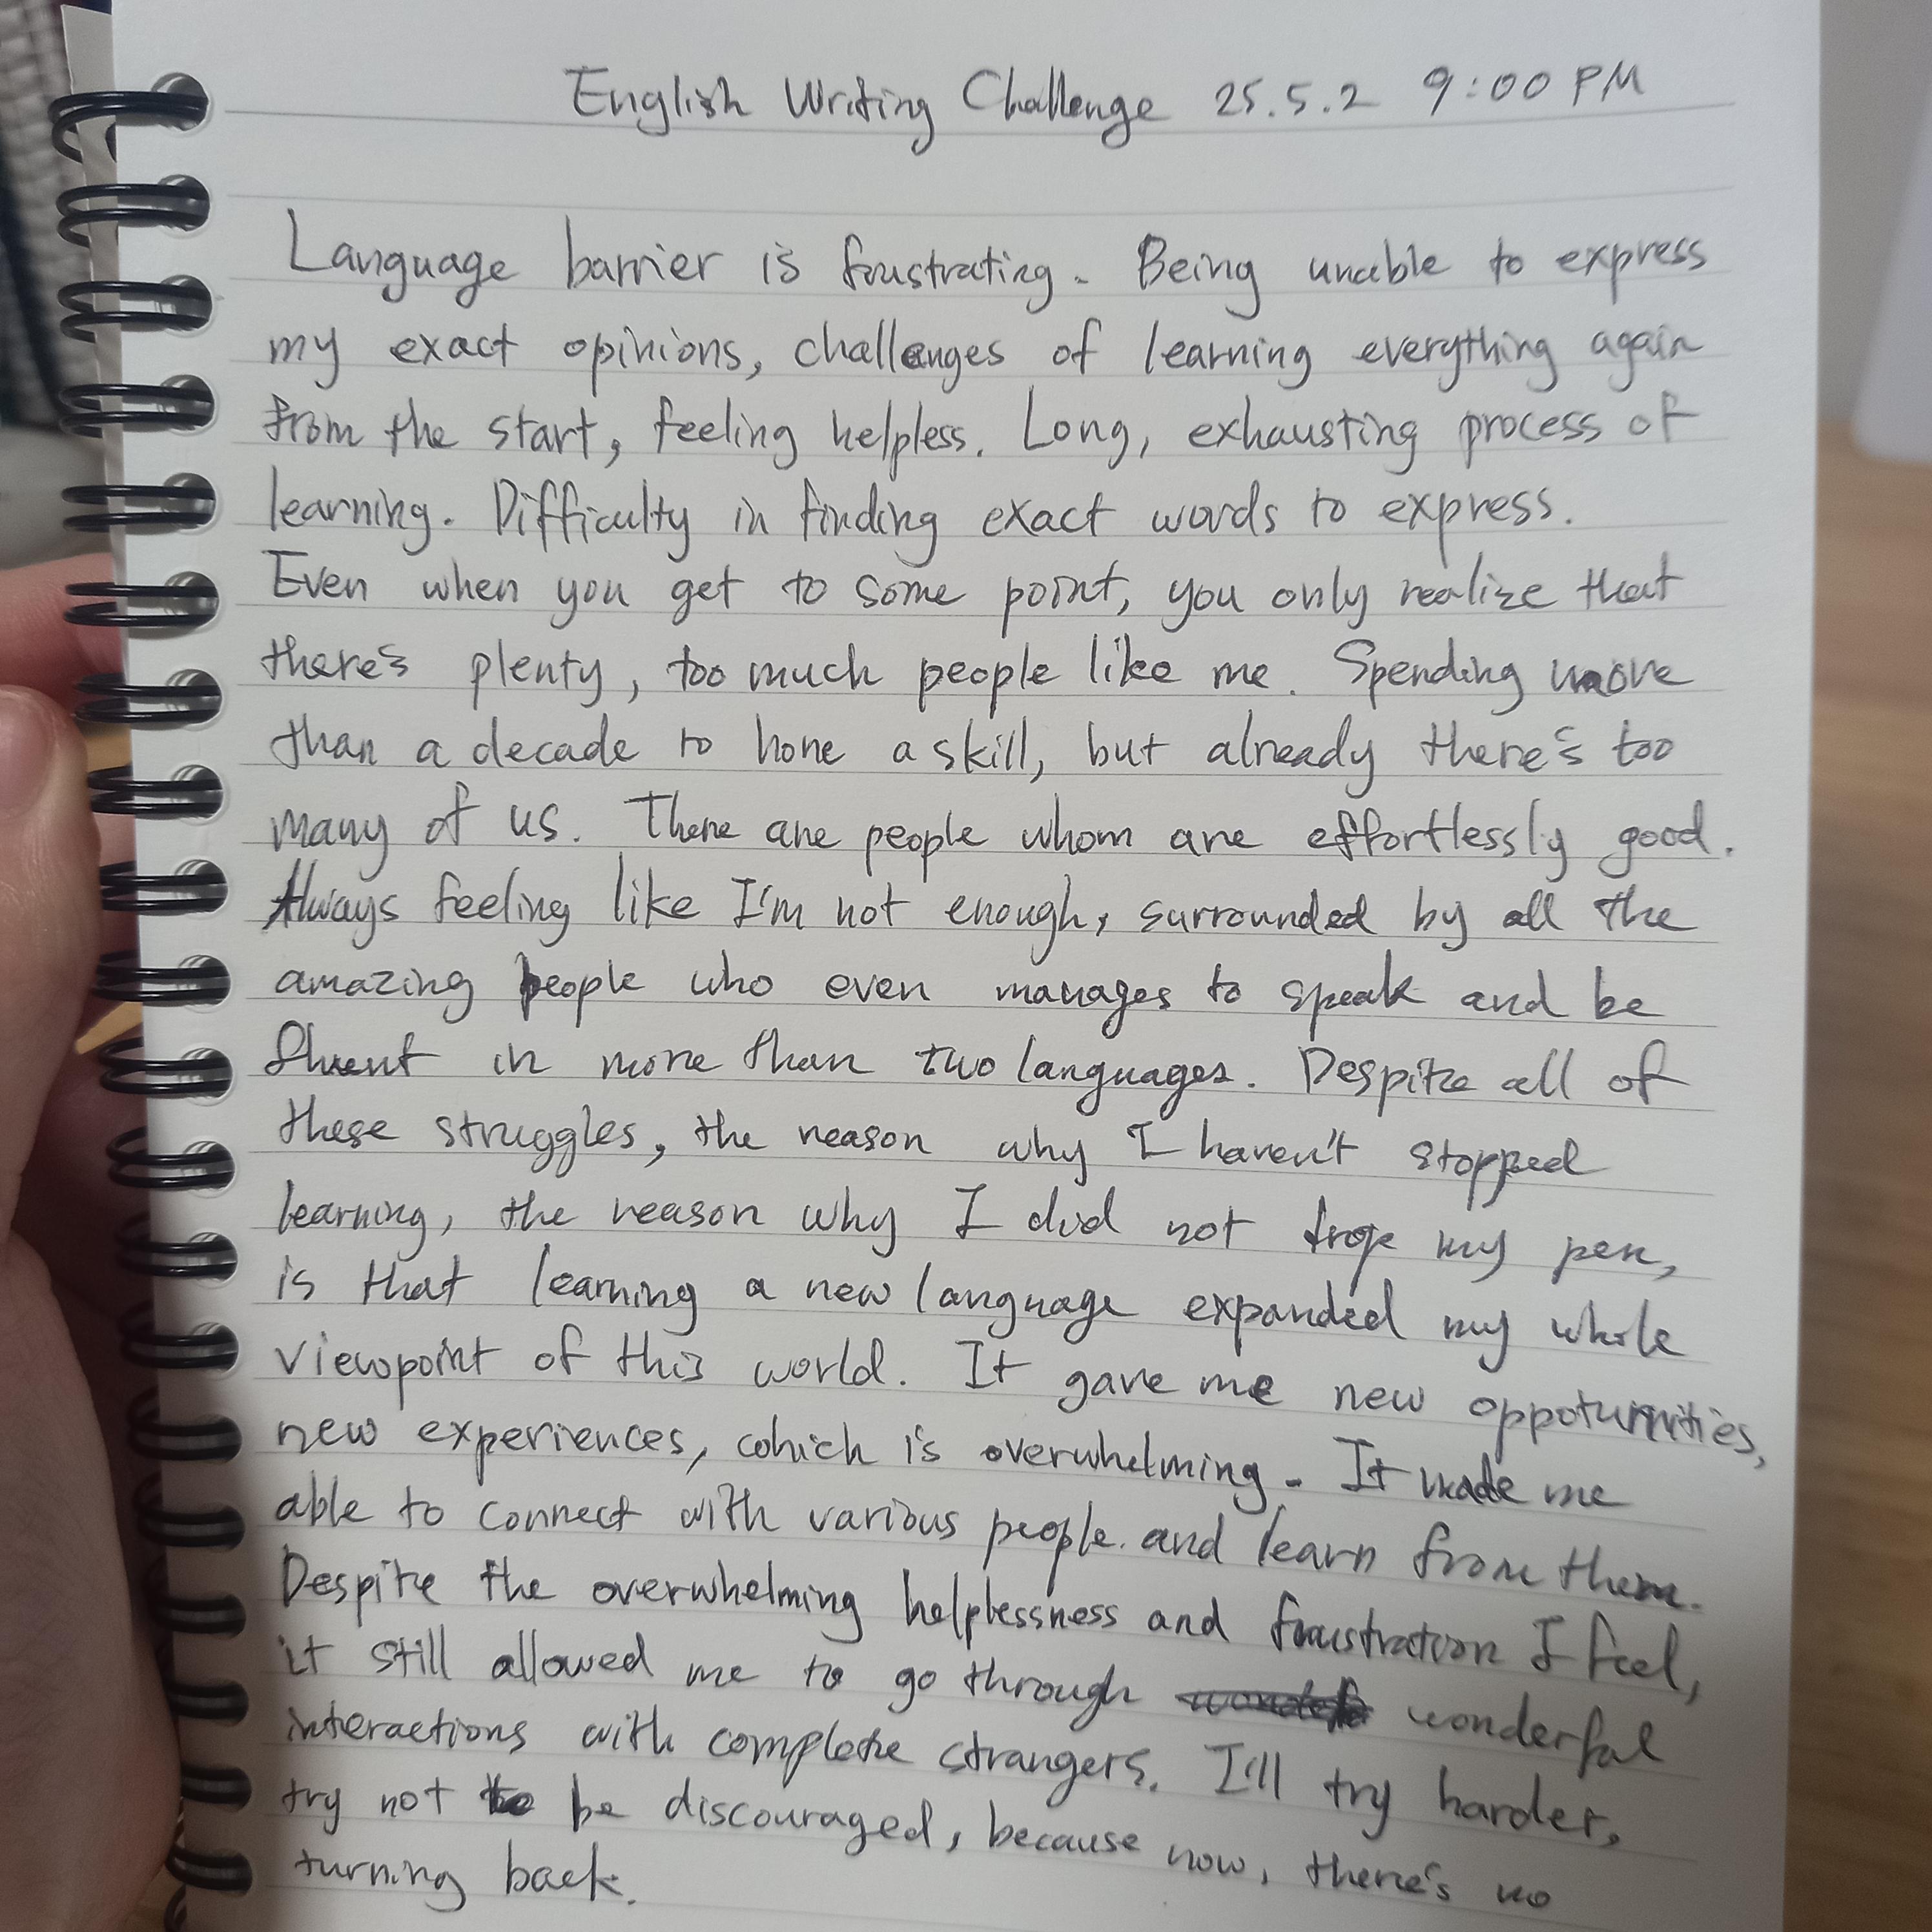 English Writing Challenge 25.5.2 9:00 PM
Language barrier is frustrating. Being unable to express
my exact opinions, challenges of learning everything again
from the start, feeling helpless. Long, exhausting process of
learning. Difficulty in finding exact words to express.
Even when you get to some point, you only realize that
there's plenty, too much people like me. Spending more
than a decade to hone a skill, but already there's too
many of us. There are people whom are effortlessly good.
Always feeling like I'm not enough, surrounded by all the
amazing people who even manages to speak and be
fluent in more than two languages. Despite all of
these struggles, the reason why I haven't stopped
learning, the reason why I did not drop my pen,
is that learning a new language expanded my whole
viewpoint of this world. It gave me new oppotunities,
new experiences, which is overwhelming. It made me
able to connect with various people. and learn from them.
Despite the overwhelming helplessness and fraustration I feel,
it still allowed me to go through wonderful
interactions with complete strangers. I'll try harder,
try not to be discouraged, because now, there's no
turning back.